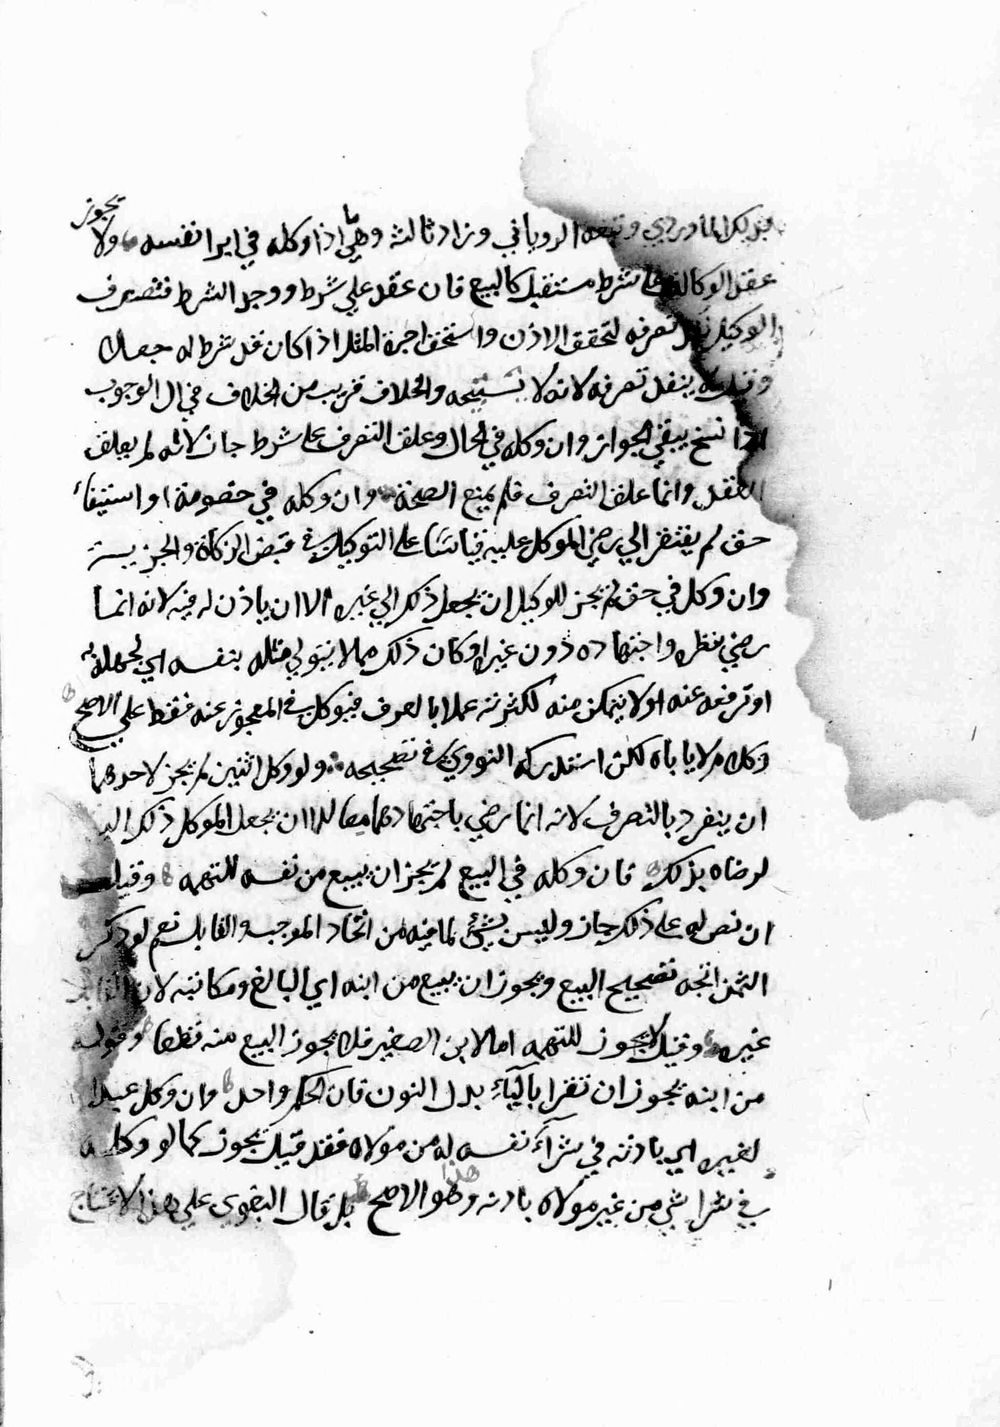 بذلك الماوردي وتبعه الروياني وزاد ثالثة وهي ما اذا وكله في ابرا نفسه ولا يجوز
عقد الوكالة على شرط مستقبل كالبيع فان عقد علي شرط ووجد الشرط فتصرف
الوكيل نفذ تصرفه لتحقق الاذن واستحق اجرة المثل اذا كان قد شرط له جعلا
وقيل لا ينفذ تصرفه لانه لا يستبيحه والخلاف قريب من الخلاف في ان الوجوب
اذا نسخ يبقي الجواز وان وكله في الحال وعلق التصرف على شرط جاز لانه لم يعلق
العقد وانما علق التصرف فلم يمنع الصحة وان وكله في خصومة او استيفاء
حق لم يفتقر الي رضي الموكل عليه قياسا على التوكيل في قبض الزكاة والجزية
وان وكل في حق لم يجز للوكيل ان يجعل ذلك الي غيره الا ان ياذن له فيه لانه انما
رضي بنظره واجتهاده دون غيره او كان ذلك مما لا يتولي مثله بنفسه اي لجهله به
او ترفعه عنه او لا يتمكن منه لكثرته عملا بالعرف فيوكل في المعجوز عنه فقط علي الاصح
وكلامه لا ياباه لكن استدركه النووي في تصحيحه ولو وكل اثنين لم يجز لاحدهما
ان ينفرد بالتصرف لانه انما رضي باجتهادهما معا الا ان يجعل الموكل ذلك اليه
لرضاه بذلك فان وكله في البيع لم يجز ان يبيع من نفسه للتهمة وقيل
ان نص له على ذلك جاز وليس بشئ لما فيه من اتحاد الموجب والقابل نعم لو ذكر
الثمن اتجه تصحيح البيع ويجوز ان يبيع من ابنه اي البالغ ومكاتبه لان القابل
غيره وقيل لا يجوز للتهمة اما الابن الصغير فلا يجوز البيع منه قطعا وقوله
من ابنه يجوز ان تقرا بالياء بدل النون فان الحكم واحد وان وكل عبدا
لغيره اي باذنه في شراء نفسه له من مولاه فقد قيل يجوز كما لو وكله
في شرا شي من غير مولاه باذنه وهذا هو الاصح بل قال البغوي علي هذا لا يحتاج